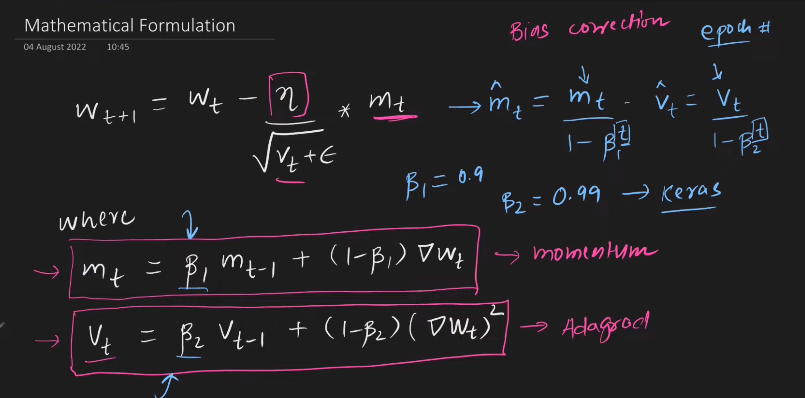 Mathematical Formulation
04 August 2022 10:45
Bias correction epoch #
w_{t+1} = w_t - η / √(v_t + ϵ) * m_t → m̂_t = m_t / (1 - β_1^t) . v̂_t = v_t / (1 - β_2^t)
β_1 = 0.9
β_2 = 0.99 → Keras
where
→ m_t = β_1 m_{t-1} + (1-β_1) ∇w_t → momentum
→ v_t = β_2 v_{t-1} + (1-β_2) (∇w_t)^2 → Adagrad